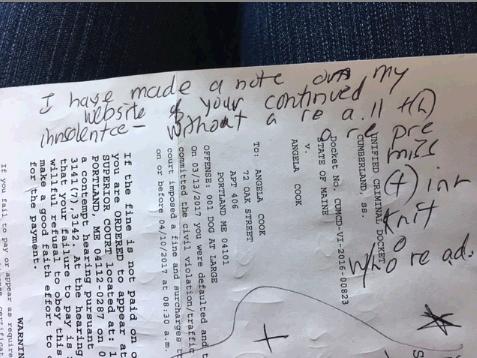 I have made a note on my
website of your continued
insolence - without a re a.ll (th)
o re pre
miss
(t) int
knit
o
who re ad.
UNIFIED CRIMINAL DOCKET
CUMBERLAND, ss.
Docket No. CUMCD-VI-2016-00823
STATE OF MAINE
v.
ANGELA COOK
To: ANGELA COOK
72 OAK STREET
APT 406
PORTLAND ME 04101
OFFENSE: 01 DOG AT LARGE
On 03/13/2017 you were defaulted and t
committed the civil violation/traffic
court imposed a fine and surcharges t
on or before 04/10/2017 at 08:30 a.m.
If the fine is not paid on o
you are ORDERED to appear at
SUPERIOR COURT located at: 1
PORTLAND ME 04112-0287 at 0
a contempt hearing pursuant
3141, 3142. At the hearing
that your failure to pay is
willful refusal to obey this
make a good faith effort to o
for the payment.
WARNIN
If you fail to pay or appear as require